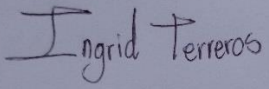 Ingrid Terreros